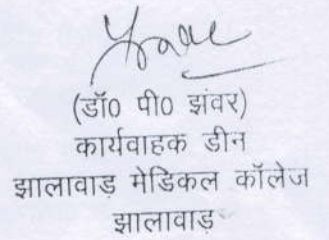 (डॉ0 पी0 झंवर)
कार्यवाहक डीन
झालावाड़ मेडिकल कॉलेज
झालावाड़